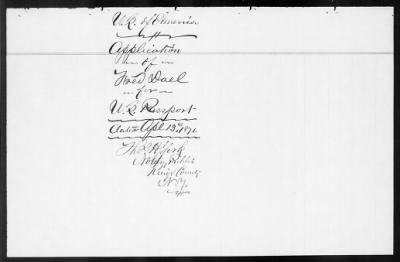 U.S. of America
Application
of
Fred Dael
for
U.S. Passport
dated Apl 13th 187
Thos. W. York
Notary Public
Kings County
N.Y.